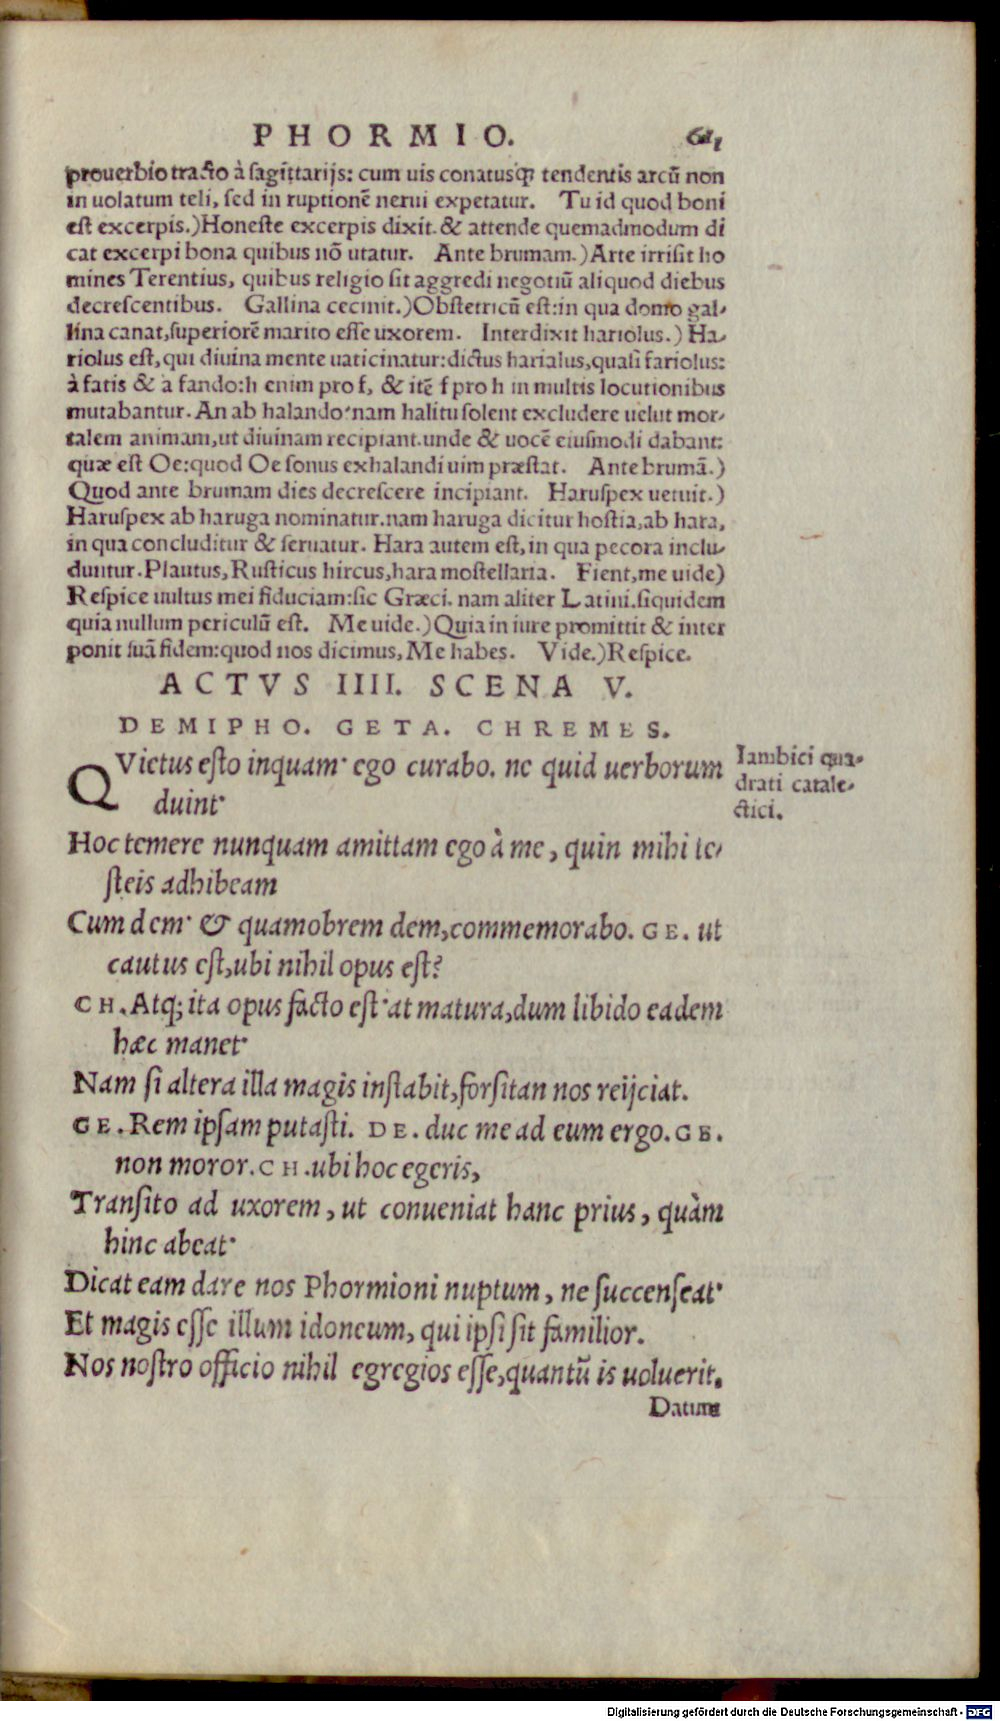 PHORMIO.
prouerbio tracto à sagittarijs: cum uis conatusq̃ tendentis arcũ non
in uolatum teli, sed in ruptionẽ nerui expetatur. Tu id quod boni
est excerpis.)Honeste excerpis dixit. & attende quemadmodum di
cat excerpi bona quibus nõ utatur. Ante brumam.)Arte irrisit ho
mines Terentius, quibus religio sit aggredi negotiũ aliquod diebus
decrescentibus. Gallina cecinit.)Obstetricũ est:in qua domo gal-
lina canat,superiorẽ marito esse uxorem. Interdixit hariolus.) Ha-
riolus est,qui diuina mente uaticinatur:dictus harialus,quasi fariolus:
à fatis & a fando:h enim pro f, & itẽ f pro h in multis locutionibus
mutabantur. An ab halando·nam halitu solent excludere uelut mor-
talem animam,ut diuinam recipiant.unde & uocẽ eiusmodi dabant:
quæ est Oe:quod Oe sonus exhalandi uim præstat. Ante brumã.)
Quod ante brumam dies decrescere incipiant. Haruspex uetuit.)
Haruspex ab haruga nominatur.nam haruga dicitur hostia,ab hara,
in qua concluditur & seruatur. Hara autem est,in qua pecora inclu-
duntur.Plautus,Rusticus hircus,hara mostellaria. Fient,me uide)
Respice uultus mei fiduciam:sic Græci. nam aliter Latini.siquidem
quia nullum periculũ est. Me uide.)Quia in iure promittit & inter
ponit suã fidem:quod nos dicimus,Me habes. Vide.)Respice.
ACTVS IIII. SCENA V.
DEMIPHO. GETA. CHREMES.
QVietus esto inquam· ego curabo. ne quid uerborum
duint·
Iambici qua-
drati catale-
ctici.
Hoc temere nunquam amittam ego à me, quin mihi te-
steis adhibeam
Cum dem· & quamobrem dem,commemorabo. GE. ut
cautus est,ubi nihil opus est?
CH. Atq; ita opus facto est·at matura,dum libido eadem
hæc manet·
Nam si altera illa magis instabit,forsitan nos reijciat.
GE. Rem ipsam putasti. DE. duc me ad eum ergo. GE.
non moror. CH. ubi hoc egeris,
Transito ad uxorem, ut conueniat hanc prius, quàm
hinc abeat·
Dicat eam dare nos Phormioni nuptum, ne succenseat·
Et magis esse illum idoneum, qui ipsi sit familior.
Nos nostro officio nihil egregios esse,quantũ is uoluerit.
Datum
Digitalisierung gefördert durch die Deutsche Forschungsgemeinschaft - DFG